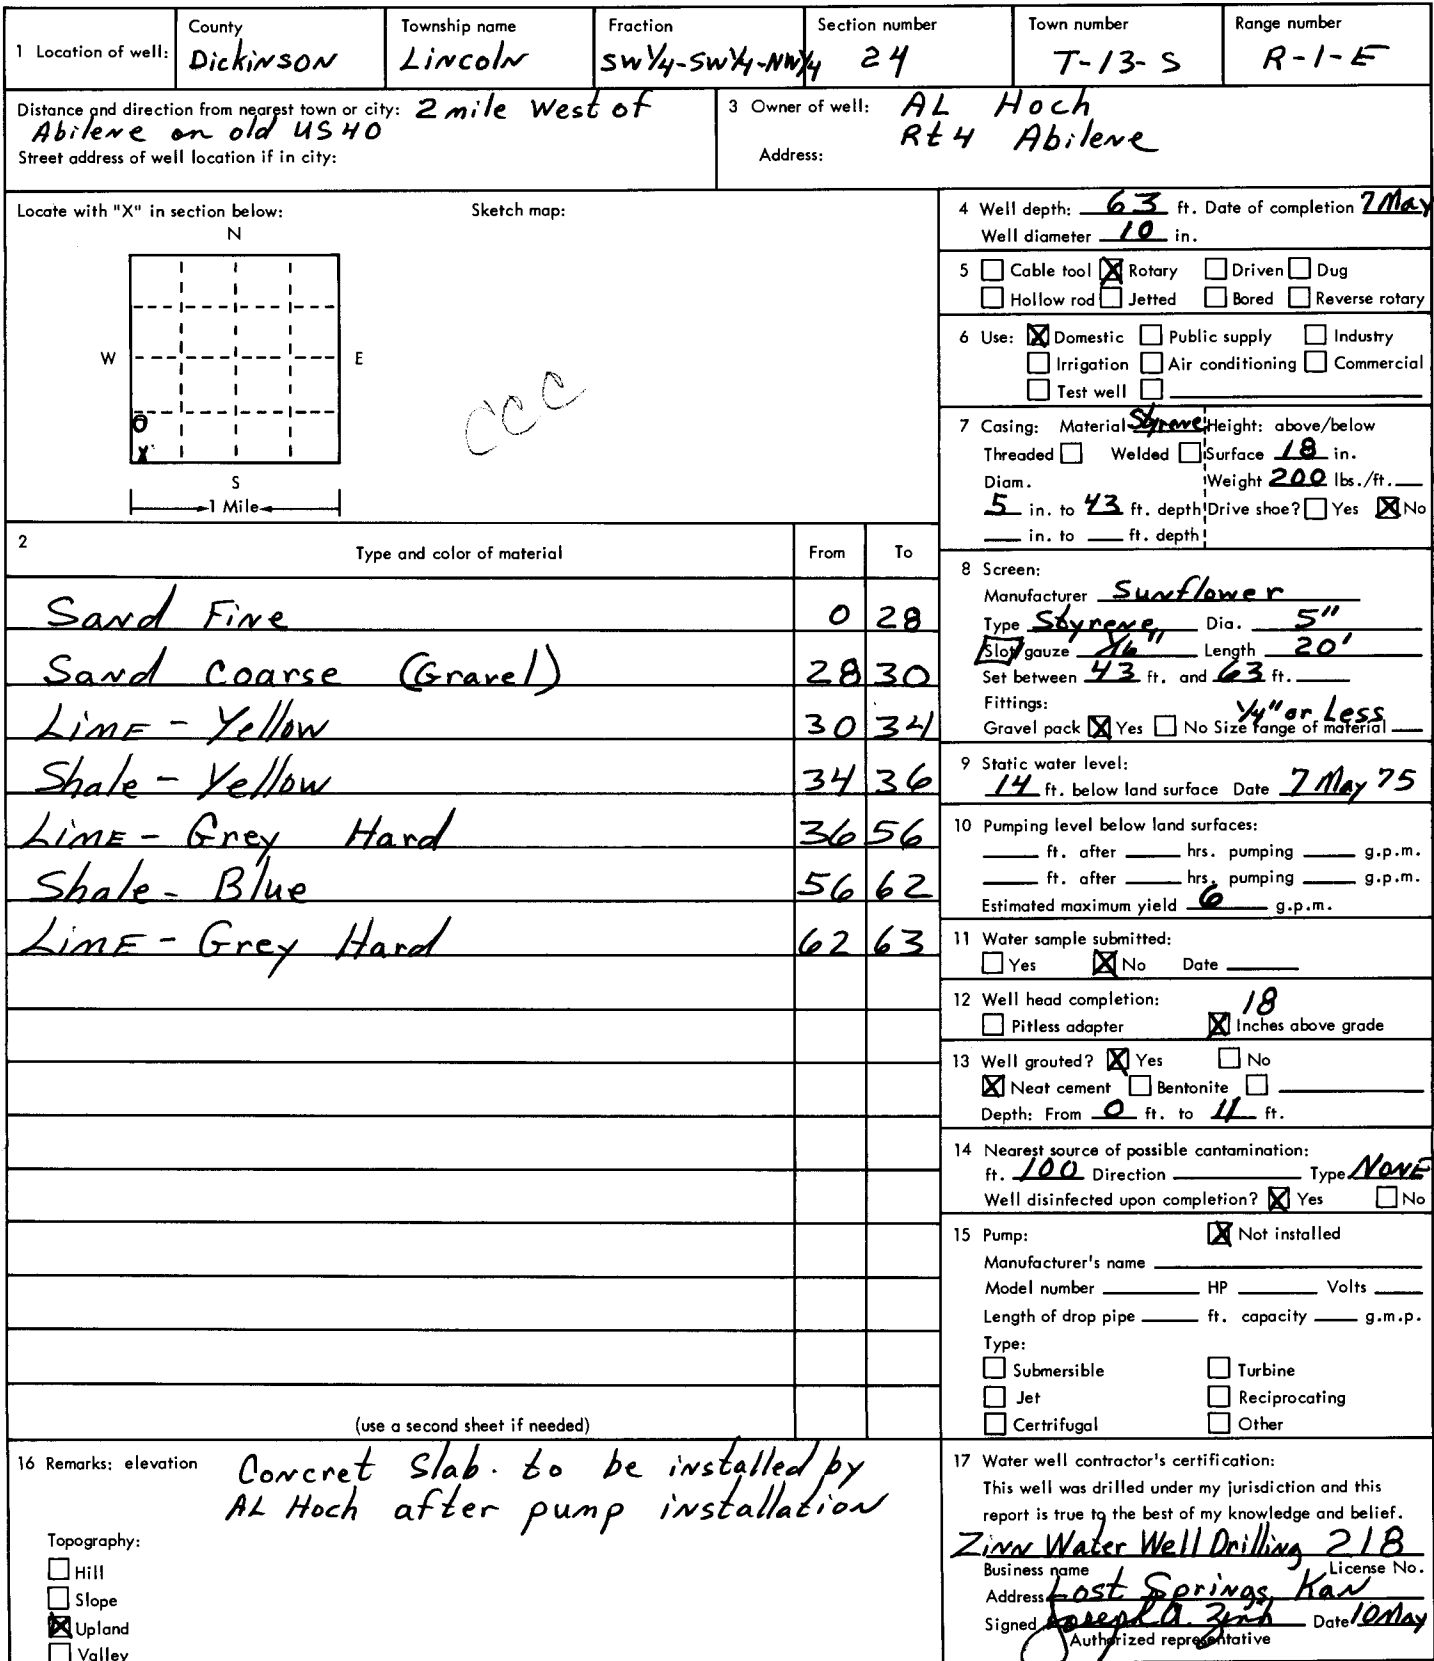 1 Location of well: County Township name Fraction Section number Town number Range number
Dickinson Lincoln SW1/4-SW1/4-NW1/4 24 T-13-S R-1-E
Distance and direction from nearest town or city: 2 mile West of
Abilene on old US 40
Street address of well location if in city:
3 Owner of well: AL Hoch
Rt 4 Abilene
Address:
Locate with "X" in section below: Sketch map:
N
W E
O
X
S
1 Mile
CCC
2 Type and color of material From To
Sand Fine 0 28
Sand Coarse (Gravel) 28 30
Lime - Yellow 30 34
Shale - Yellow 34 36
Lime - Grey Hard 36 56
Shale - Blue 56 62
Lime - Grey Hard 62 63
(use a second sheet if needed)
4 Well depth: 63 ft. Date of completion 7 May
Well diameter 10 in.
5 Cable tool X Rotary Driven Dug
Hollow rod Jetted Bored Reverse rotary
6 Use: X Domestic Public supply Industry
Irrigation Air conditioning Commercial
Test well
7 Casing: Material Styrene Height: above/below
Threaded Welded Surface 18 in.
Diam. Weight 200 lbs./ft.
5 in. to 43 ft. depth Drive shoe? Yes X No
in. to ft. depth
8 Screen:
Manufacturer Sunflower
Type Styrene Dia. 5"
Slot/gauze 1/16" Length 20'
Set between 43 ft. and 63 ft.
Fittings: 1/4" or Less
Gravel pack X Yes No Size range of material
9 Static water level:
14 ft. below land surface Date 7 May 75
10 Pumping level below land surfaces:
ft. after hrs. pumping g.p.m.
ft. after hrs. pumping g.p.m.
Estimated maximum yield 6 g.p.m.
11 Water sample submitted:
Yes X No Date
12 Well head completion: 18
Pitless adapter X Inches above grade
13 Well grouted? X Yes No
X Neat cement Bentonite
Depth: From 0 ft. to 11 ft.
14 Nearest source of possible cantamination:
ft. 100 Direction Type NONE
Well disinfected upon completion? X Yes No
15 Pump: X Not installed
Manufacturer's name
Model number HP Volts
Length of drop pipe ft. capacity g.m.p.
Type:
Submersible Turbine
Jet Reciprocating
Certrifugal Other
16 Remarks: elevation Concret Slab. to be installed by
AL Hoch after pump installation
Topography:
Hill
Slope
X Upland
Valley
17 Water well contractor's certification:
This well was drilled under my jurisdiction and this
report is true to the best of my knowledge and belief.
Zinn Water Well Drilling 218
Business name License No.
Address Lost Springs, Kan
Signed Joseph A. Zinn Date 10 May
Authorized representative